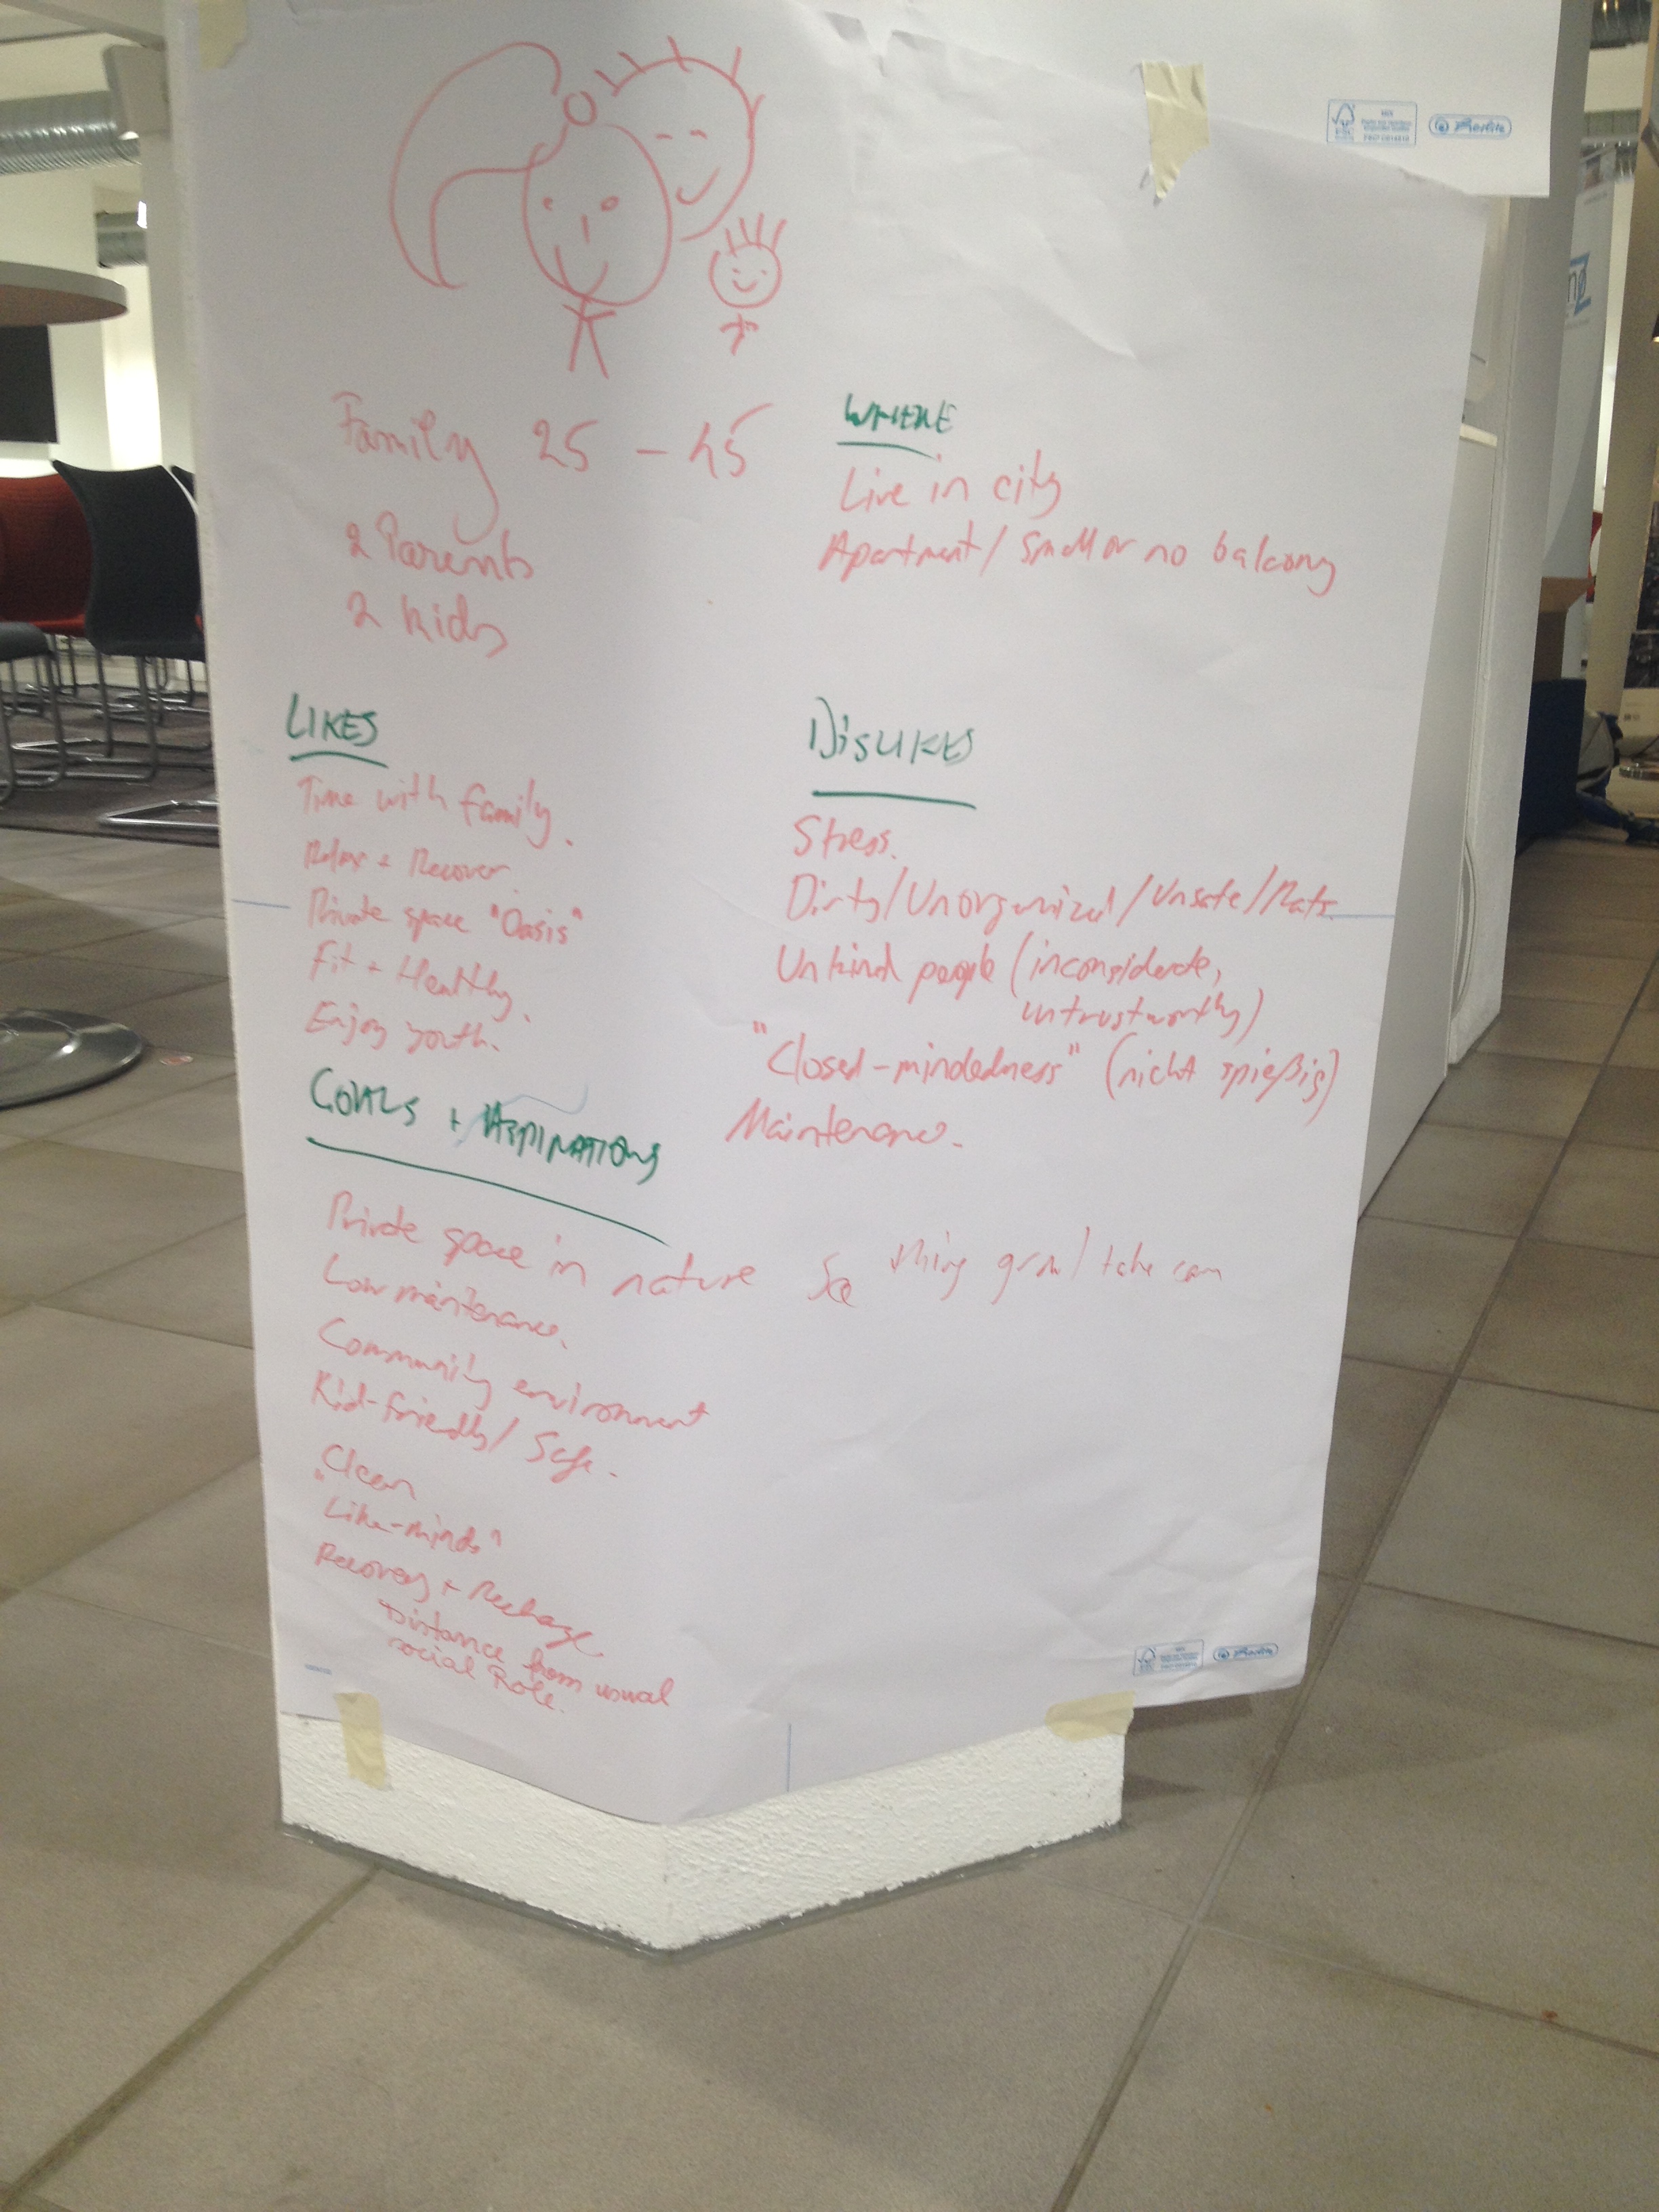 Family 25 - 45
2 Parents
2 kids
WHERE
Live in city
Apartment / Small or no balcony
LIKES
Time with family.
Relax + Recover
Private space "Oasis"
Fit + Healthy.
Enjoy youth.
DisLIKES
Stress.
Dirty/Unorganized/Unsafe/Rats
Unkind people (inconsiderate,
untrustworthy)
"Closed-mindedness" (nicht spießig)
Maintenance.
GOALS + ASPIRATIONS
Private space in nature
See thing grow / take care
Low maintenance.
Community environment
Kid-friendly / Safe.
Clean
"Like-minds"
Recovery + Recharge
Distance from usual
social Role.
FSC
MIX
Herlitz
FSC
Herlitz